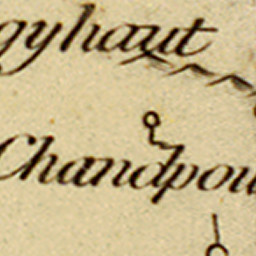 gyhaut
Chandpou